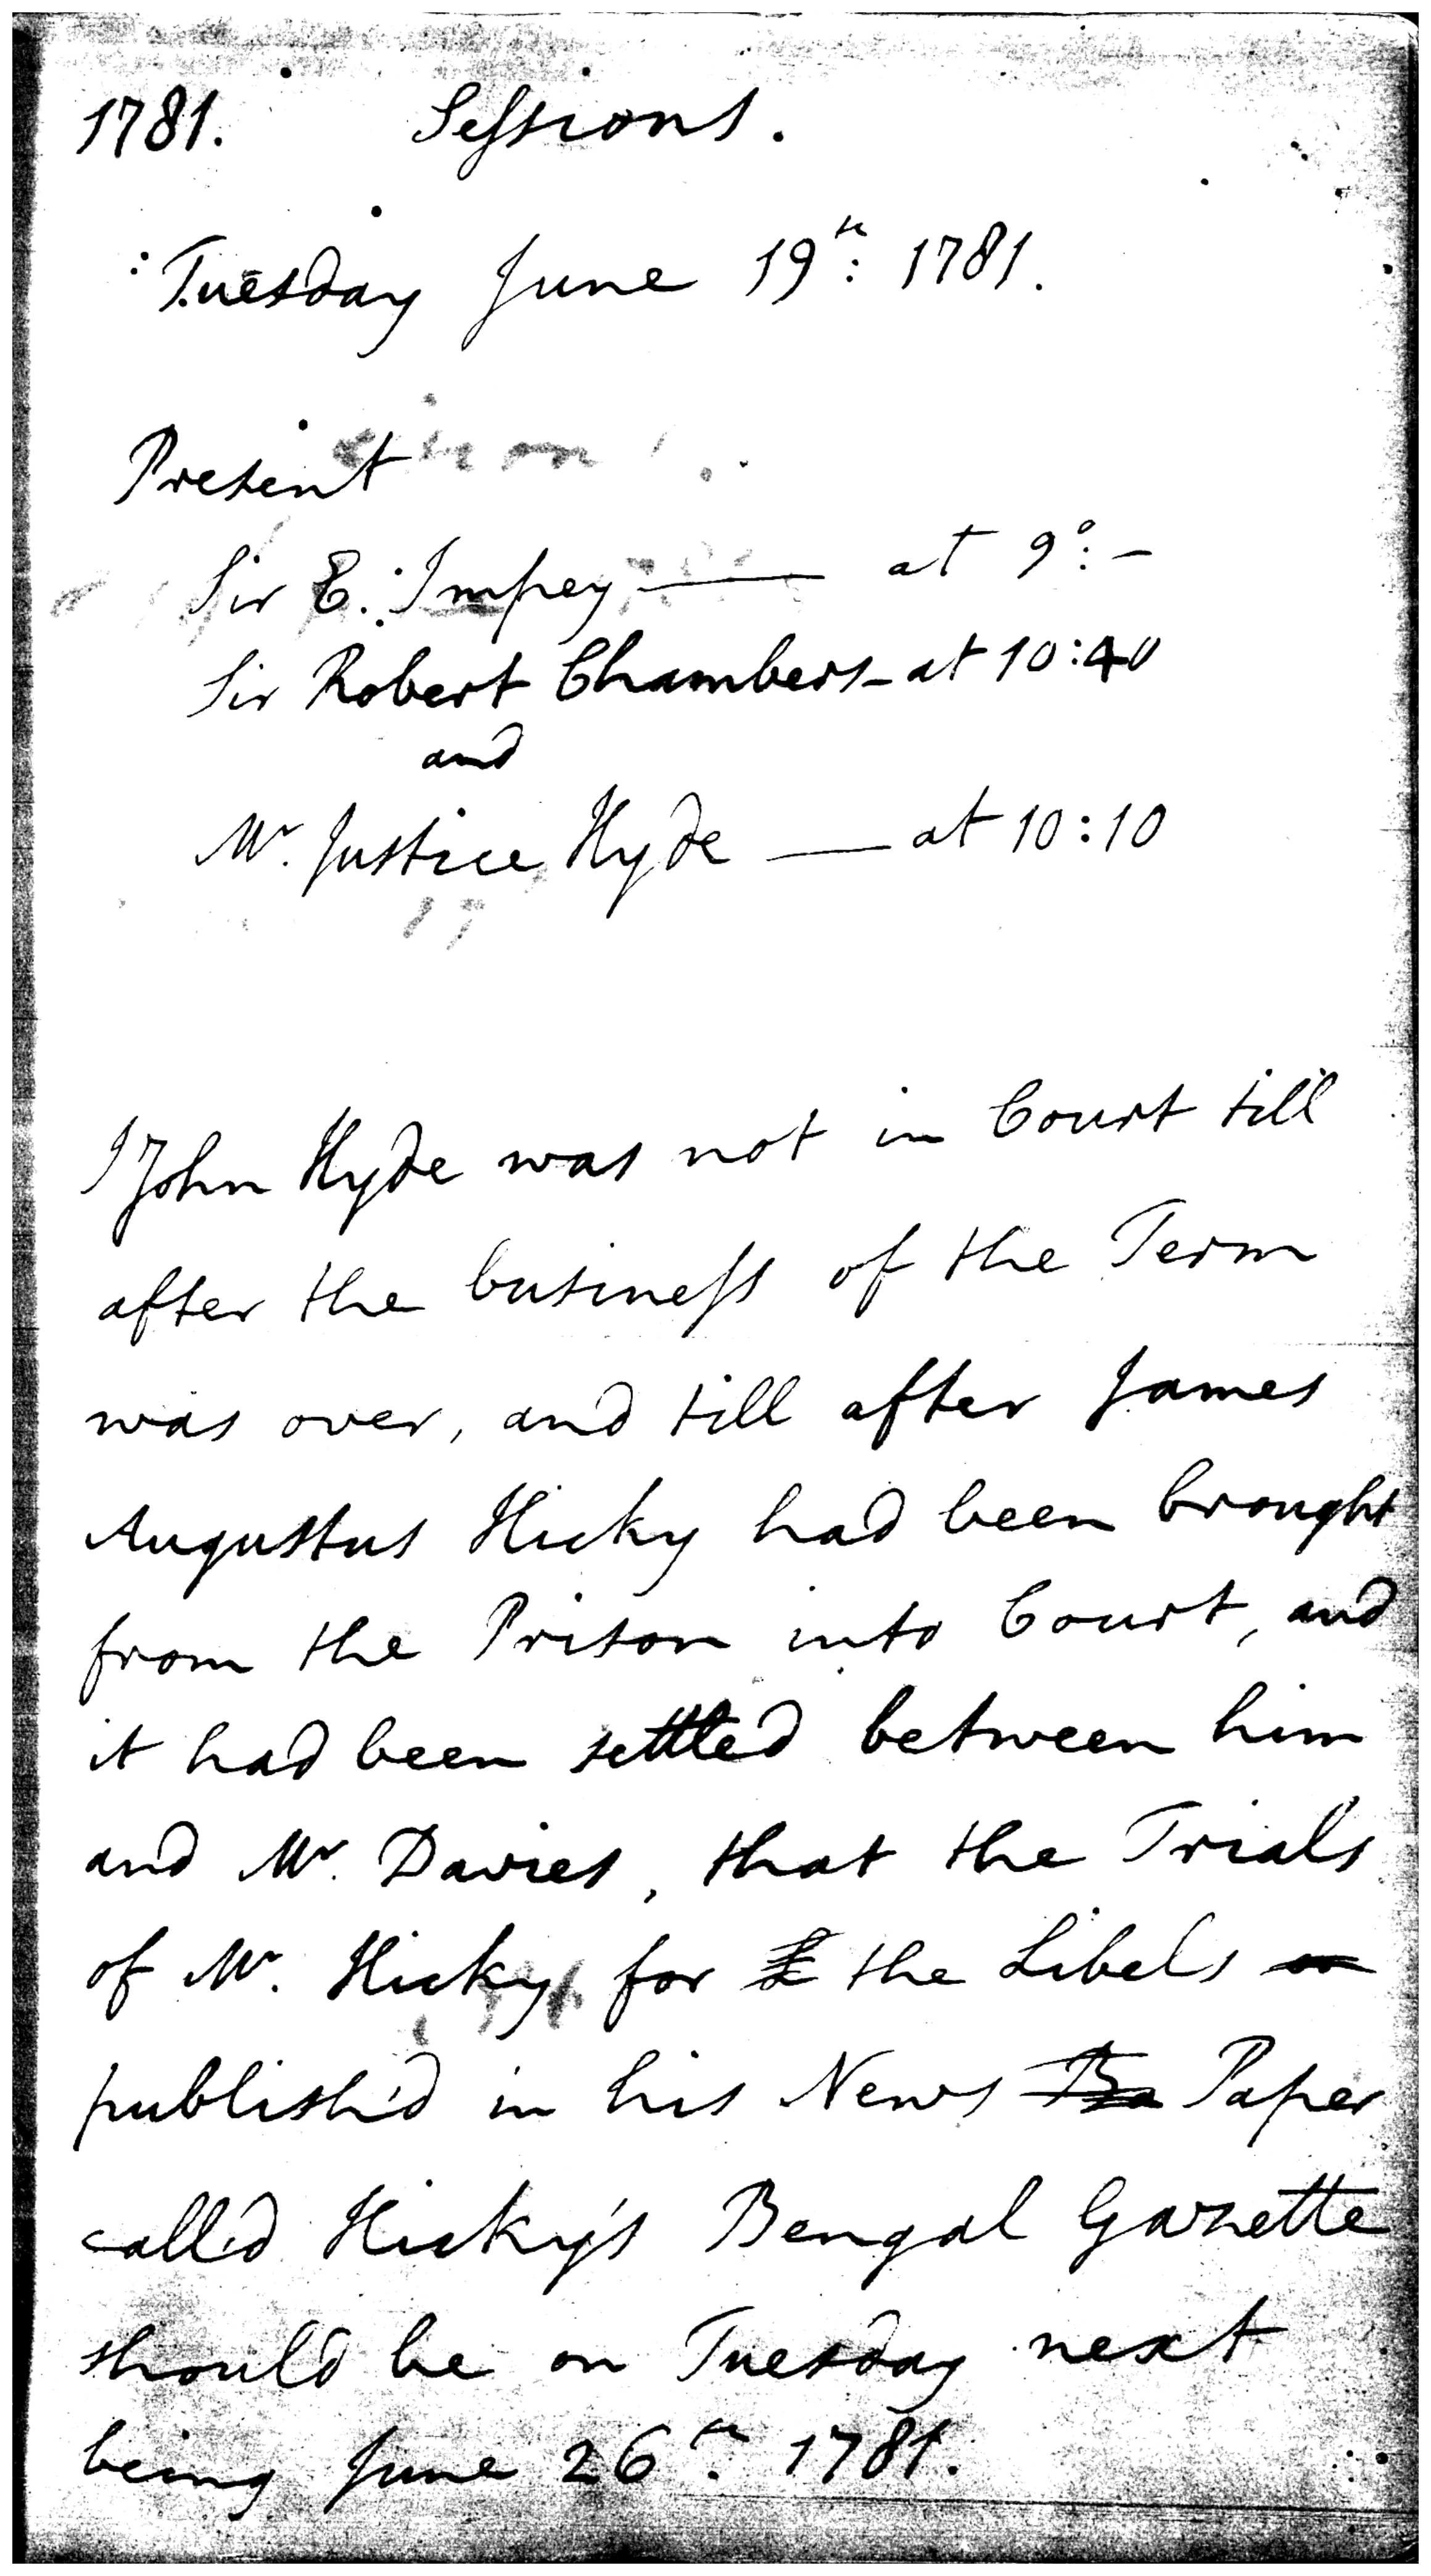 1781. Seſsions.
Tuesday June 19th: 1781.
Present
Sir E: Impey —— at 9°: –
Sir Robert Chambers – at 10:40
and
Mr. Justice Hyde —— at 10:10
I John Hyde was not in Court till
after the buſineſs of the Term
was over, and till after James
Augustus Hicky had been brought
from the Prison into Court, and
it had been settled between him
and Mr. Davies, that the Trials
of Mr. Hicky for the Libels
publish'd in his News Paper
call'd Hicky's Bengal Gazette
should be on Tuesday next
being June 26th. 1781.